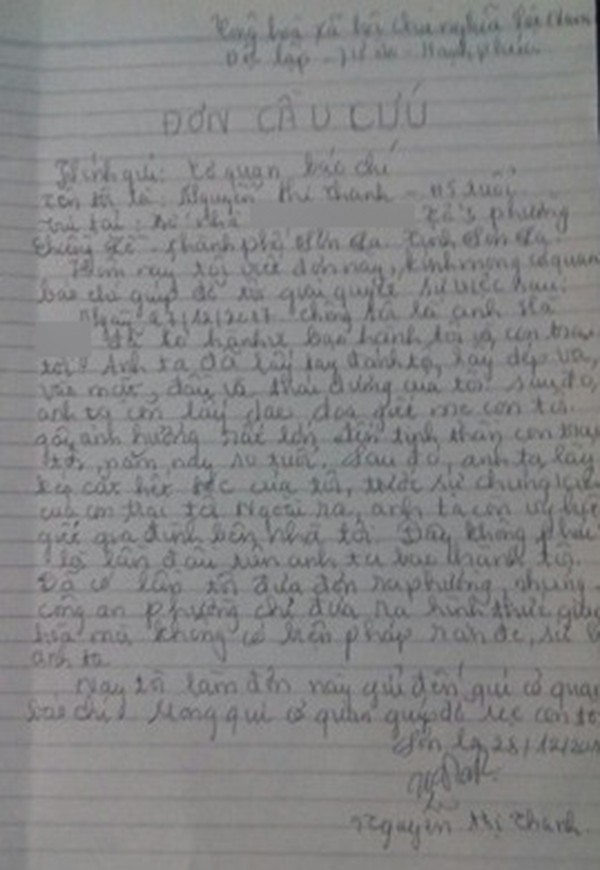 Cộng hoà xã hội chủ nghĩa Việt Nam
Độc lập - Tự do - Hạnh phúc
ĐƠN CẦU CỨU
Kính gửi: Cơ quan báo chí
Tên tôi là: Nguyễn Thị Thanh - tuổi
trú tại: Số nhà tổ 5 phường
Chiềng Lề - thành phố Sơn La tỉnh Sơn La.
Hôm nay tôi viết đơn này, kính mong cơ quan
báo chí giúp đỡ tôi giải quyết sự việc sau:
Ngày 27/12/2017 chồng tôi là anh Hà
hành vi bạo hành tôi và con trai
tôi. Anh ta đã lấy tay đánh tôi, lấy dép vả,
vào mặt, đầu và thái dương của tôi. Sau đó,
anh ta còn lấy dao dọa giết mẹ con tôi.
gây ảnh hưởng rất lớn đến tinh thần con trai
tôi, năm nay tuổi. Sau đó, anh ta lấy
kéo cắt hết tóc của tôi, trước sự chứng kiến
của con trai tôi. Ngoài ra, anh ta còn
giết gia đình bên nhà tôi. Đây không phải
là lần đầu tiên anh ta bạo hành tôi.
Đã có lần tôi đưa đơn ra phường, nhưng
công an phường chỉ đưa ra hình thức
hoà mà không có biện pháp răn đe, xử
anh ta.
Nay tôi làm đơn này gửi đến quí cơ quan
báo chí. Mong quí cơ quan giúp đỡ mẹ con tôi
Sơn la, 28/12/
Nguyễn Thị Thanh